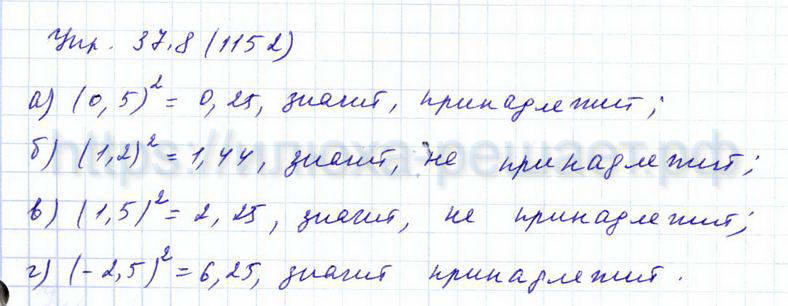 Упр. 37.8 (1152)
а) (0,5)² = 0,25, значит, принадлежит;
б) (1,2)² = 1,44, значит, не принадлежит;
в) (1,5)² = 2,25, значит, не принадлежит;
г) (-2,5)² = 6,25, значит принадлежит.